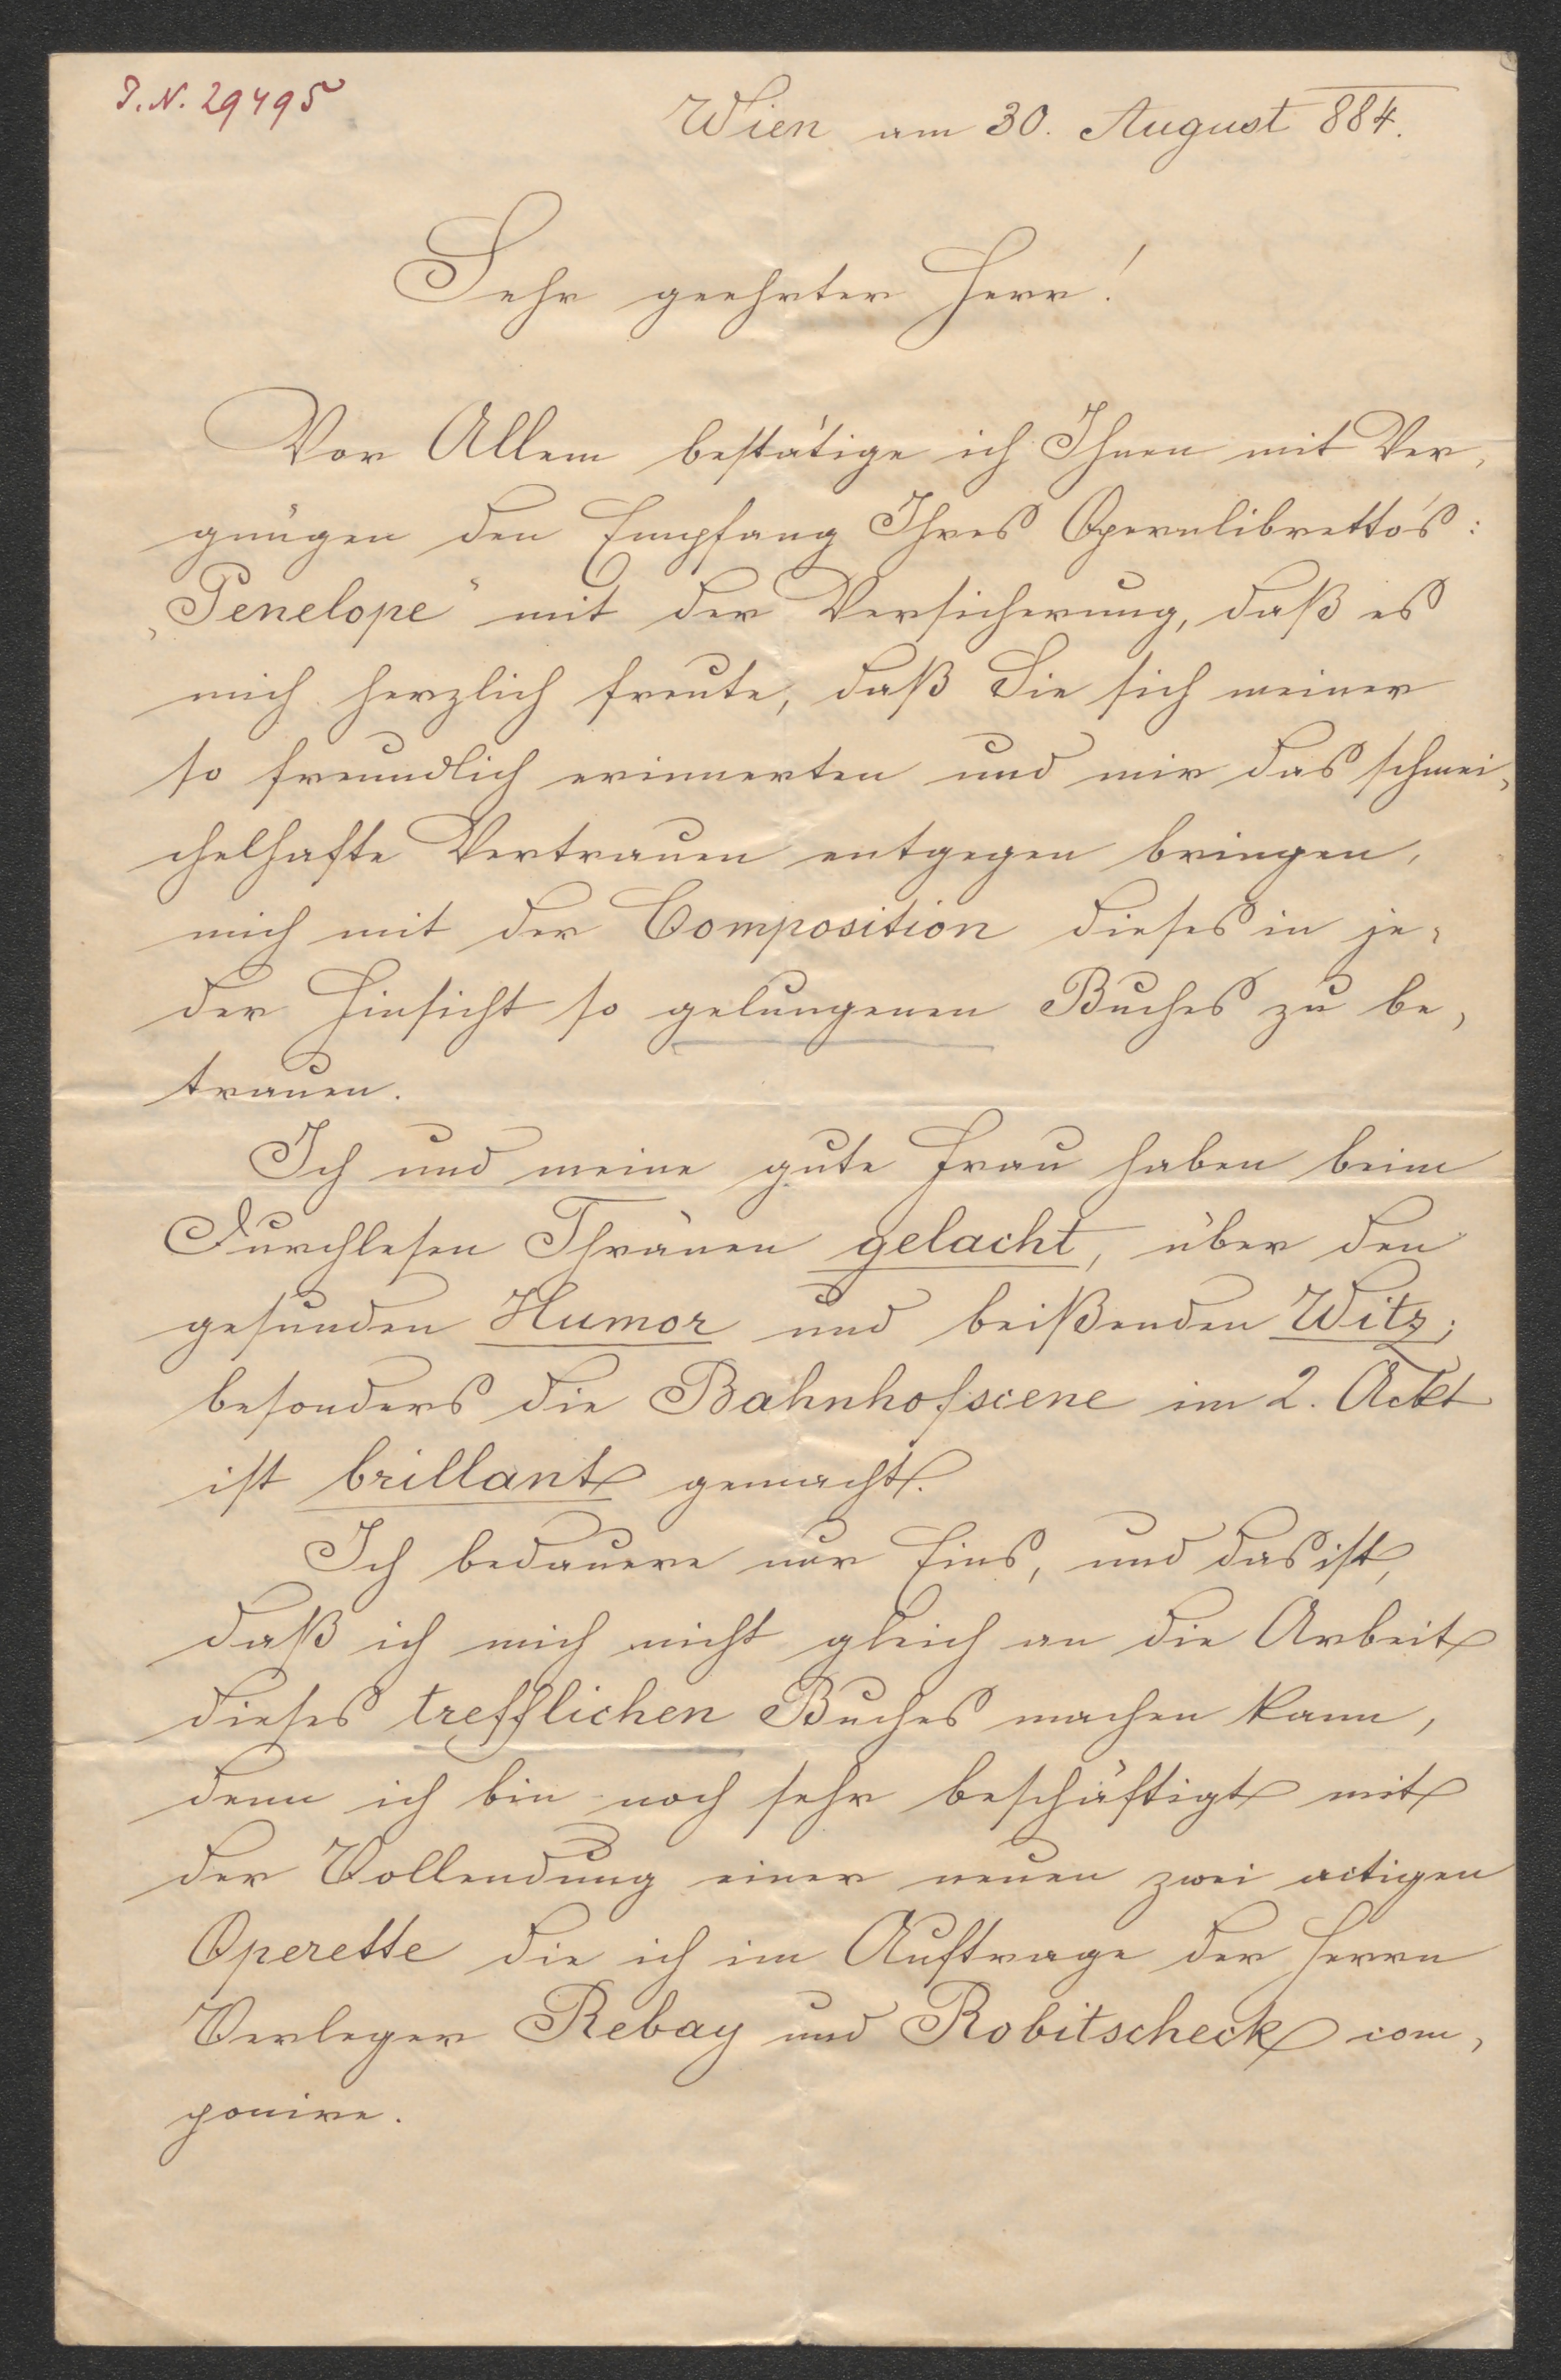 J. N. 29495
Wien am 30. August 884.
Sehr geehrter Herr!
Vor Allem bestätige ich Ihnen mit Ver,
gnügen den Empfang Ihres Opernlibretto's:
„Penelope" mit der Versicherung, daß es
mich herzlich freute, daß Sie sich meiner
so freundlich erinnerten und mir das schmei,
chelhafte Vertrauen entgegen bringen,
mich mit der Composition dieses in je,
der Hinsicht so gelungenen Buches zu be,
trauen.
Ich und meine gute Frau haben beim
Durchlesen Thränen gelacht, über den
gesunden Humor und beißenden Witz;
besonders die Bahnhofscene im 2. Ackt
ist brillant gemacht.
Ich bedauere nur Eins, und das ist,
daß ich mich nicht gleich an die Arbeit
dieses trefflichen Buches machen kann,
denn ich bin noch sehr beschäftigt mit
der Vollendung einer neuen zwei actigen
Operette die ich im Auftrage der Herrn
Verleger Rebay und Robitscheck com,
ponire.